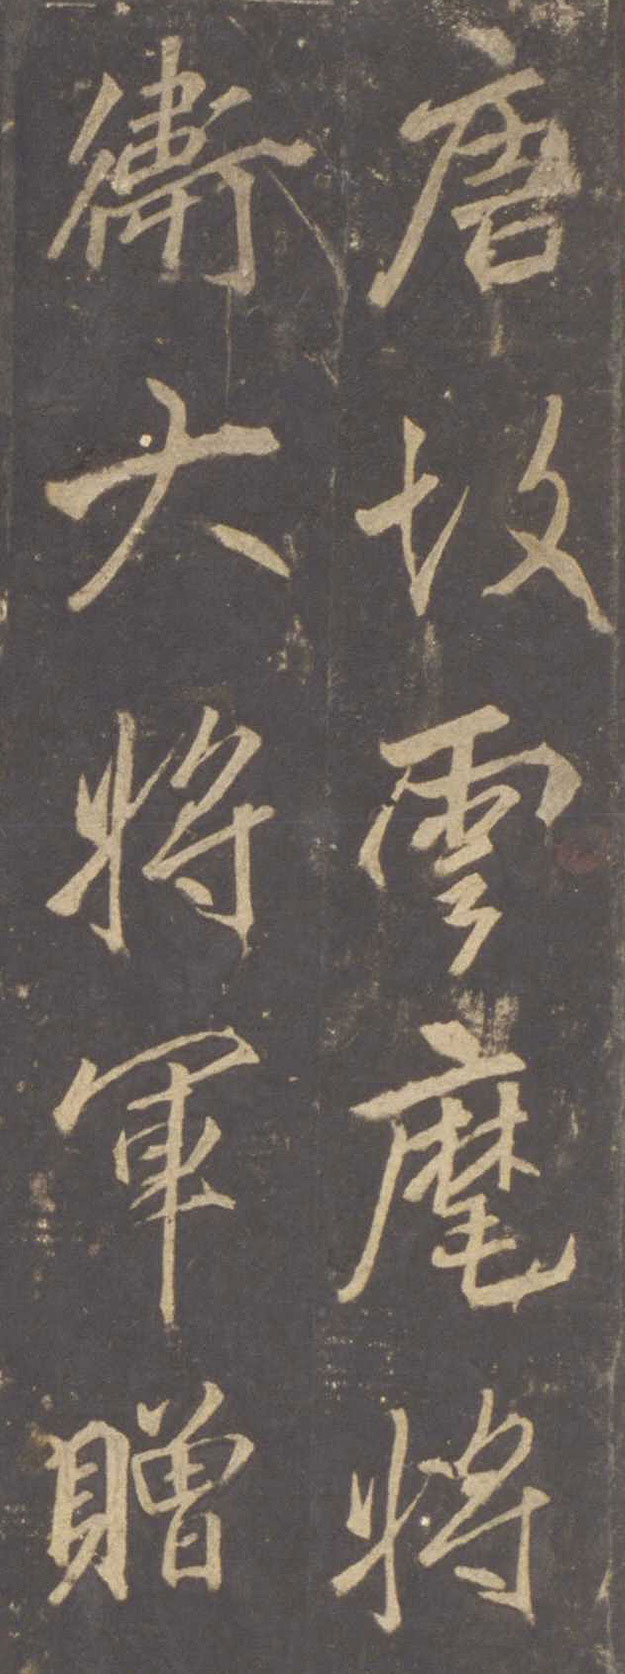 唐故雲麾將
衛大將軍贈